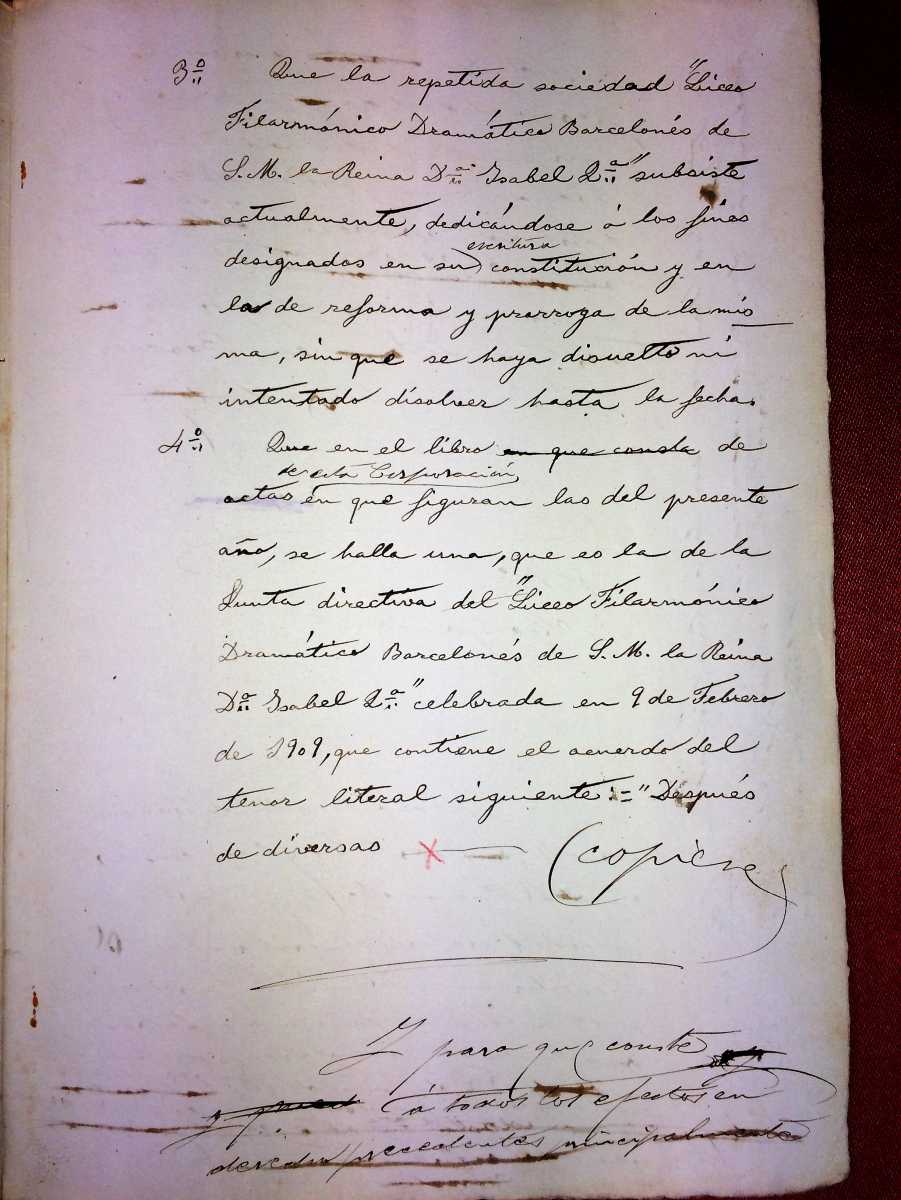 3º Que la repetida sociedad "Liceo
Filarmónico Dramático Barcelonés de
S. M. la Reina Dª Isabel 2ª" subsiste
actualmente, dedicándose á los fines
escritura
designados en su constitución y en
la de reforma y prorroga de la mis
ma, sin que se haya disuelto ni
intentado disolver hasta la fecha.
4º Que en el libro en que consta de
de esta Corporación
actas en que figuran las del presente
año, se halla una, que es la de la
Junta directiva del "Liceo Filarmónico
Dramático Barcelonés de S. M. la Reina
Dª Isabel 2ª" celebrada en 9 de Febrero
de 1909, que contiene el acuerdo del
tenor literal siguiente:=" Después
de diversas X
(copiese)
Y para que conste
á todos los efectos en
derecho procedentes principalmente